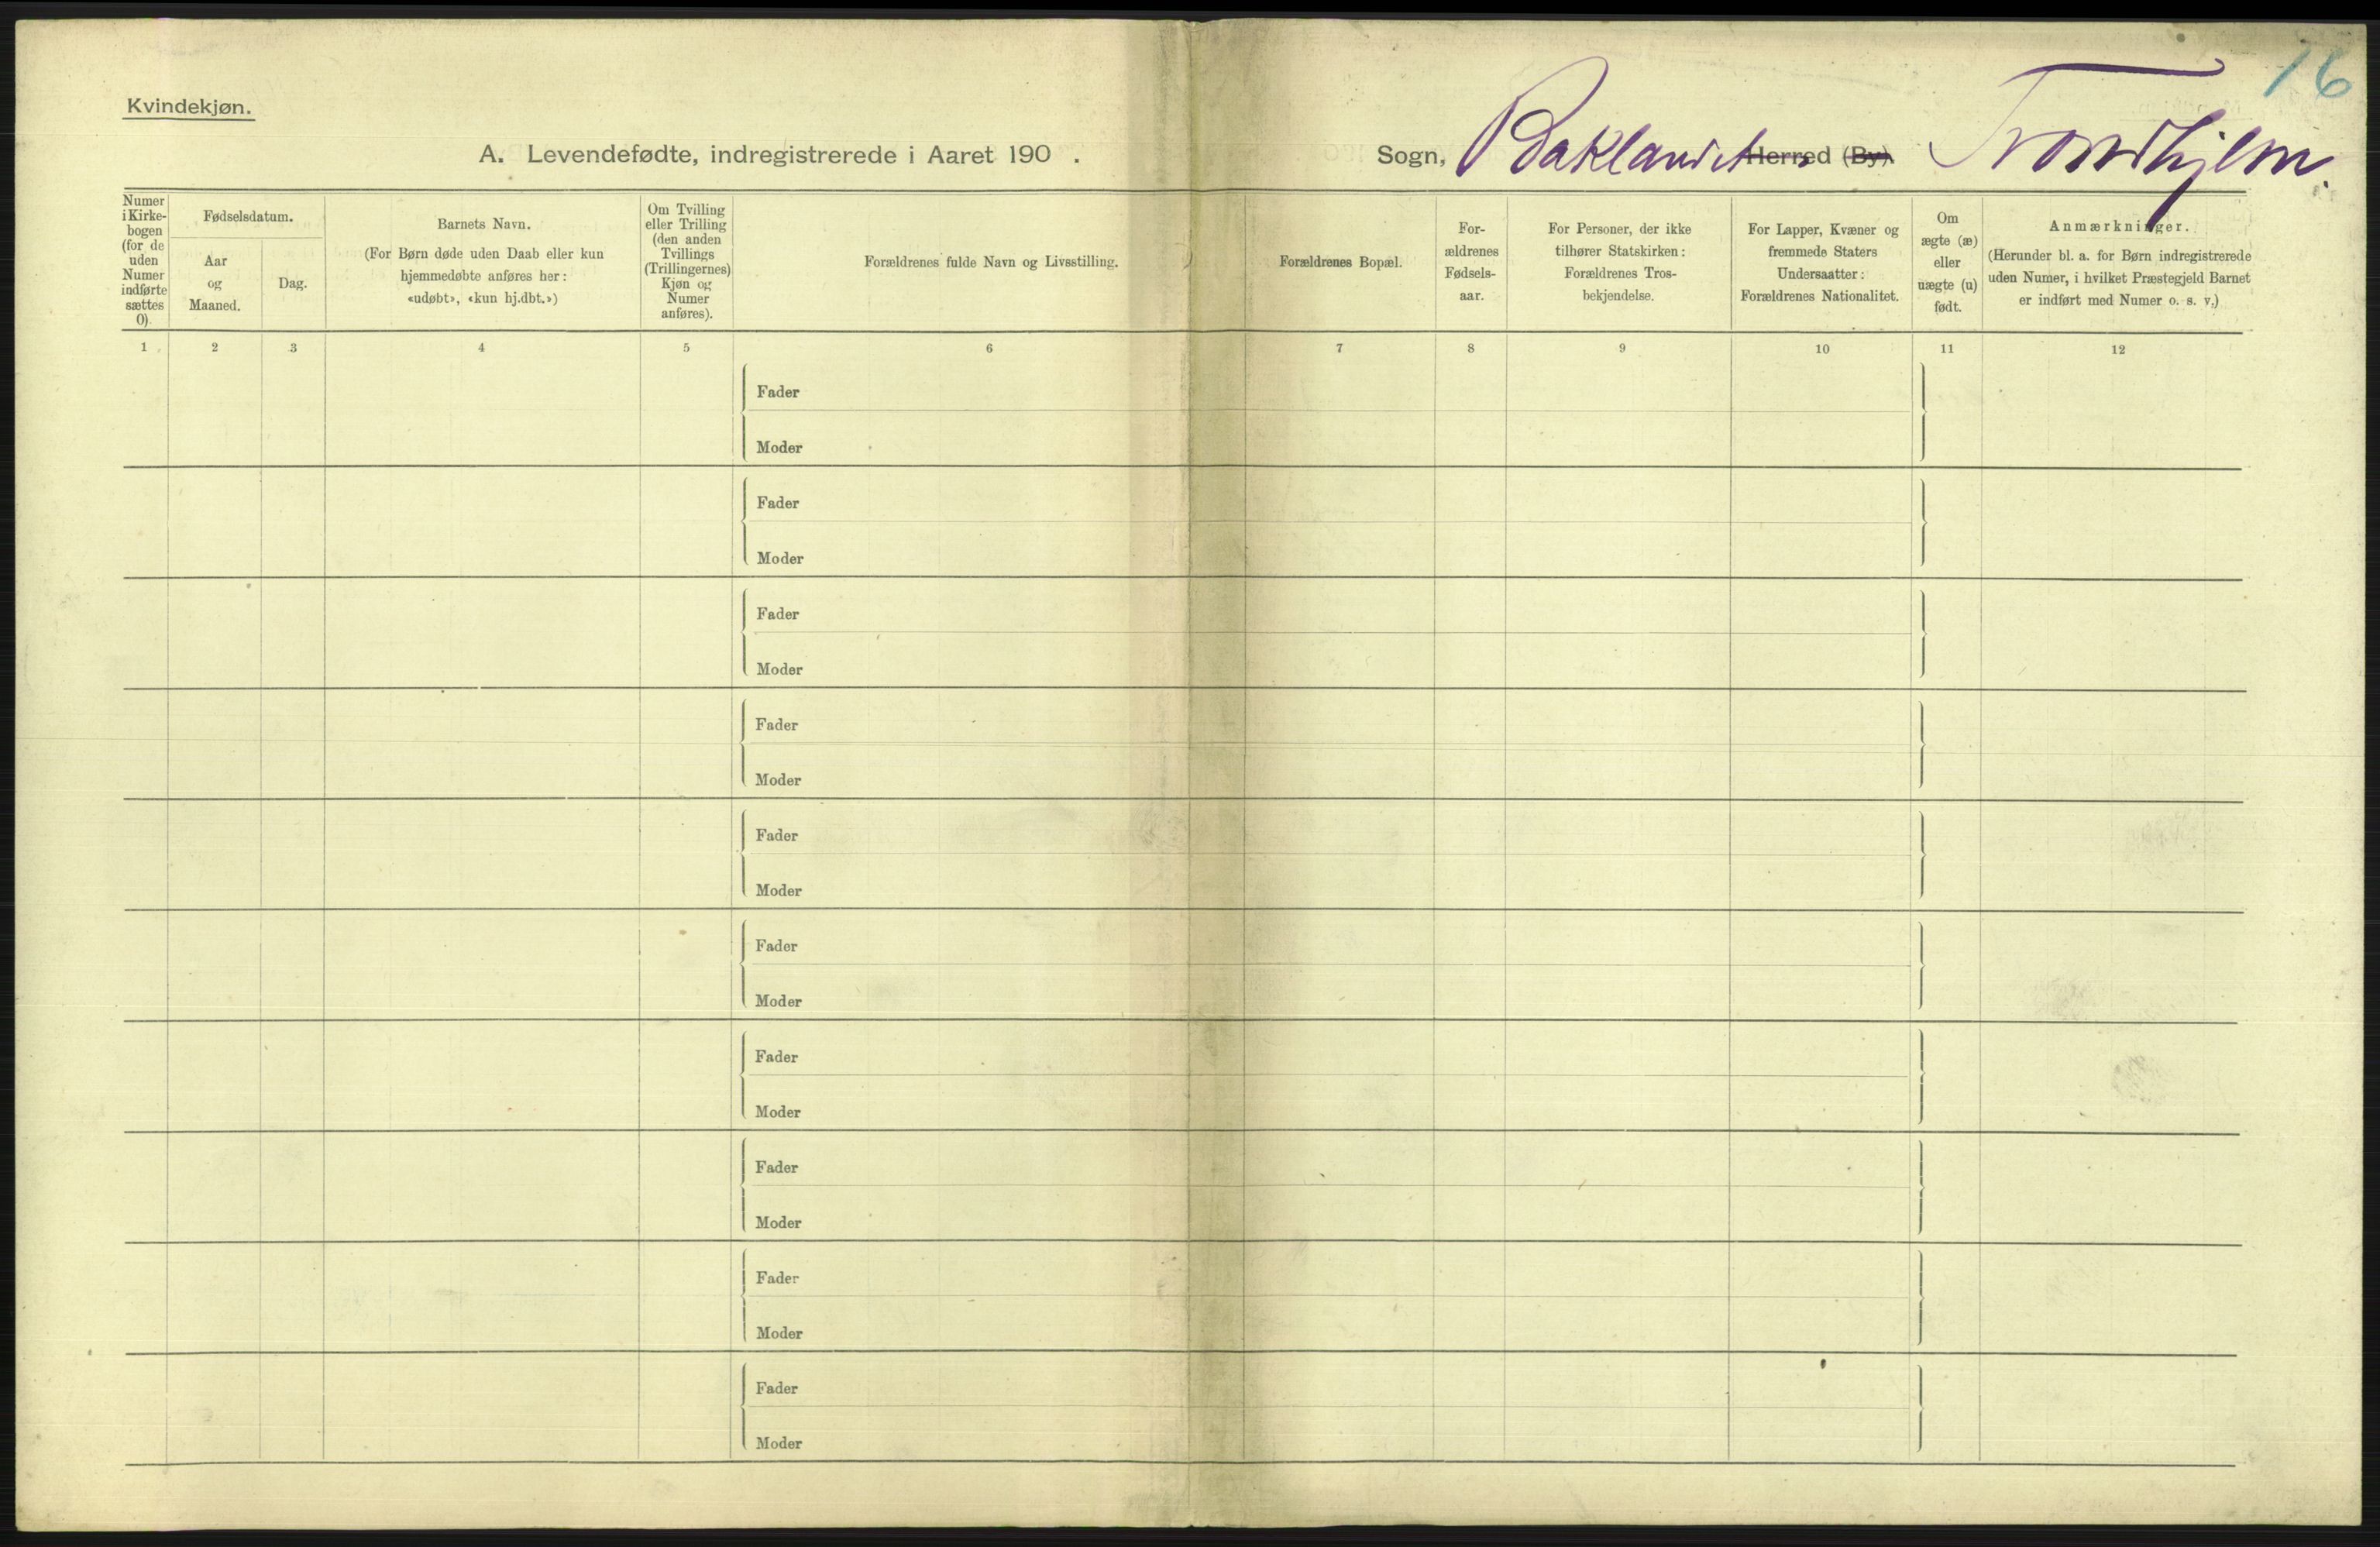 16
Kvindekjøn.
A. Levendefødte, indregistrerede i Aaret 190 .
Sogn, Baklandet Herred (By). Trondhjem.
Numer
i Kirke-
bogen
(for de
uden
Numer
indførte
sættes
0).
Fødselsdatum.
Aar
og
Maaned.
Dag.
Barnets Navn.
(For Børn døde uden Daab eller kun
hjemmedøbte anføres her:
«udøbt», «kun hj.dbt.»)
Om Tvilling
eller Trilling
(den anden
Tvillings
(Trillingernes)
Kjøn og
Numer
anføres).
Forældrenes fulde Navn og Livsstilling.
Forældrenes Bopæl.
For-
ældrenes
Fødsels-
aar.
For Personer, der ikke
tilhører Statskirken:
Forældrenes Tros-
bekjendelse.
For Lapper, Kvæner og
fremmede Staters
Undersaatter:
Forældrenes Nationalitet.
Om
ægte (æ)
eller
uægte (u)
født.
Anmærkninger.
(Herunder bl. a. for Børn indregistrerede
uden Numer, i hvilket Præstegjeld Barnet
er indført med Numer o. s. v.)
1 2 3 4 5 6 7 8 9 10 11 12
Fader
Moder
Fader
Moder
Fader
Moder
Fader
Moder
Fader
Moder
Fader
Moder
Fader
Moder
Fader
Moder
Fader
Moder
Fader
Moder